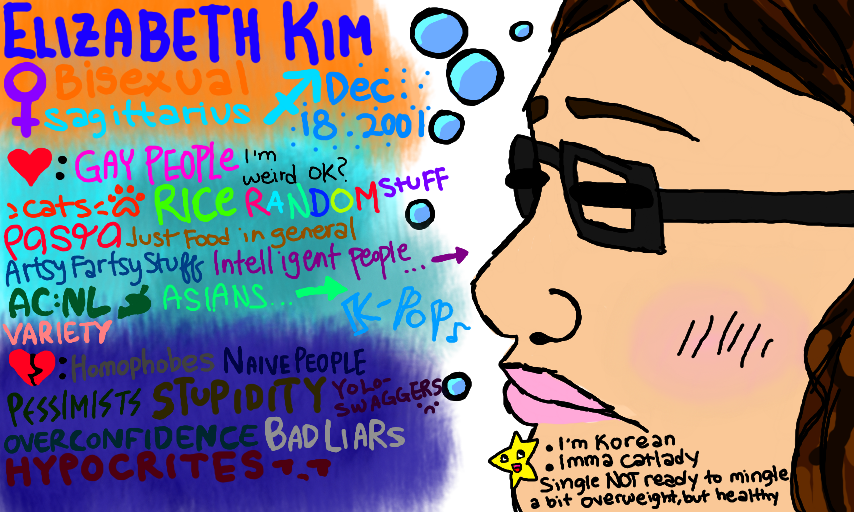 ELIZABETH KIM
Bisexual
Sagittarius
Dec.
18. 2001
: GAY PEOPLE I'm weird OK?
:cats: RICE RANDOM STUFF
PASTA Just Food in general
Artsy Fartsy Stuff Intelligent People...
AC:NL ASIANS...
K-POP
VARIETY
: Homophobes NAIVE PEOPLE
PESSIMISTS STUPIDITY YOLO-SWAGGERS
OVERCONFIDENCE BAD LIARS
HYPOCRITES T-T
• I'm Korean
• Imma catlady
Single NOT ready to mingle
a bit overweight, but healthy